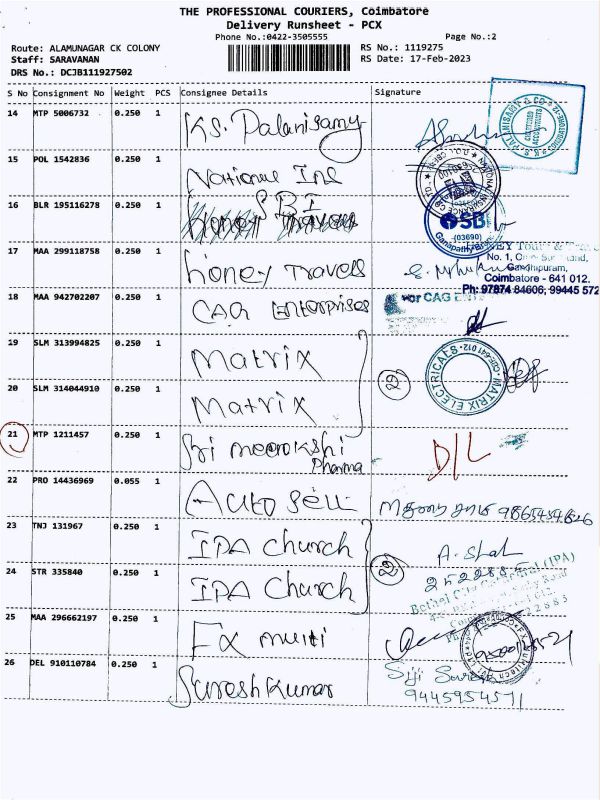 THE PROFESSIONAL COURIERS, Coimbatore
Delivery Runsheet - PCX
Phone No.:0422-3505555 Page No.:2
Route: ALAMUNAGAR CK COLONY RS No.: 1119275
Staff: SARAVANAN RS Date: 17-Feb-2023
DRS No.: DCJB111927502
S No Consignment No Weight PCS Consignee Details Signature
14 MTP 5006732 0.250 1 K.S. Palanisamy
15 POL 1542836 0.250 1 National Ins
16 BLR 195116278 0.250 1 SBI
Honey Travels
SBI
(03690)
17 MAA 299118758 0.250 1 Honey Travels
No. 1,
Gandhipuram,
Coimbatore - 641 012.
Ph: 97874 84606, 99445 572
18 MAA 942702207 0.250 1 CAG Enterprises
For CAG
19 SLM 313994825 0.250 1 Matrix
MATRIX ELECTRICALS
20 SLM 314044910 0.250 1 Matrix
2
21 MTP 1211457 0.250 1 Sri Meenakshi
Pharma
D/L
22 PRO 14436969 0.055 1 Auto Sell
23 TNJ 131967 0.250 1 IPA Church
24 STR 335840 0.250 1 IPA Church
2
(IPA)
25 MAA 296662197 0.250 1 Fx multi
26 DEL 910110784 0.250 1 Suresh Kumar
Siji
9445954571